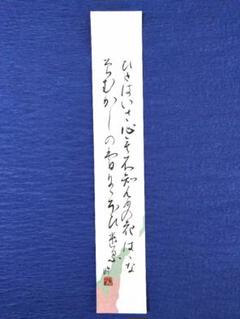 ひとはいさ心も不知ふるさとはな
そむかしの香ににほひける